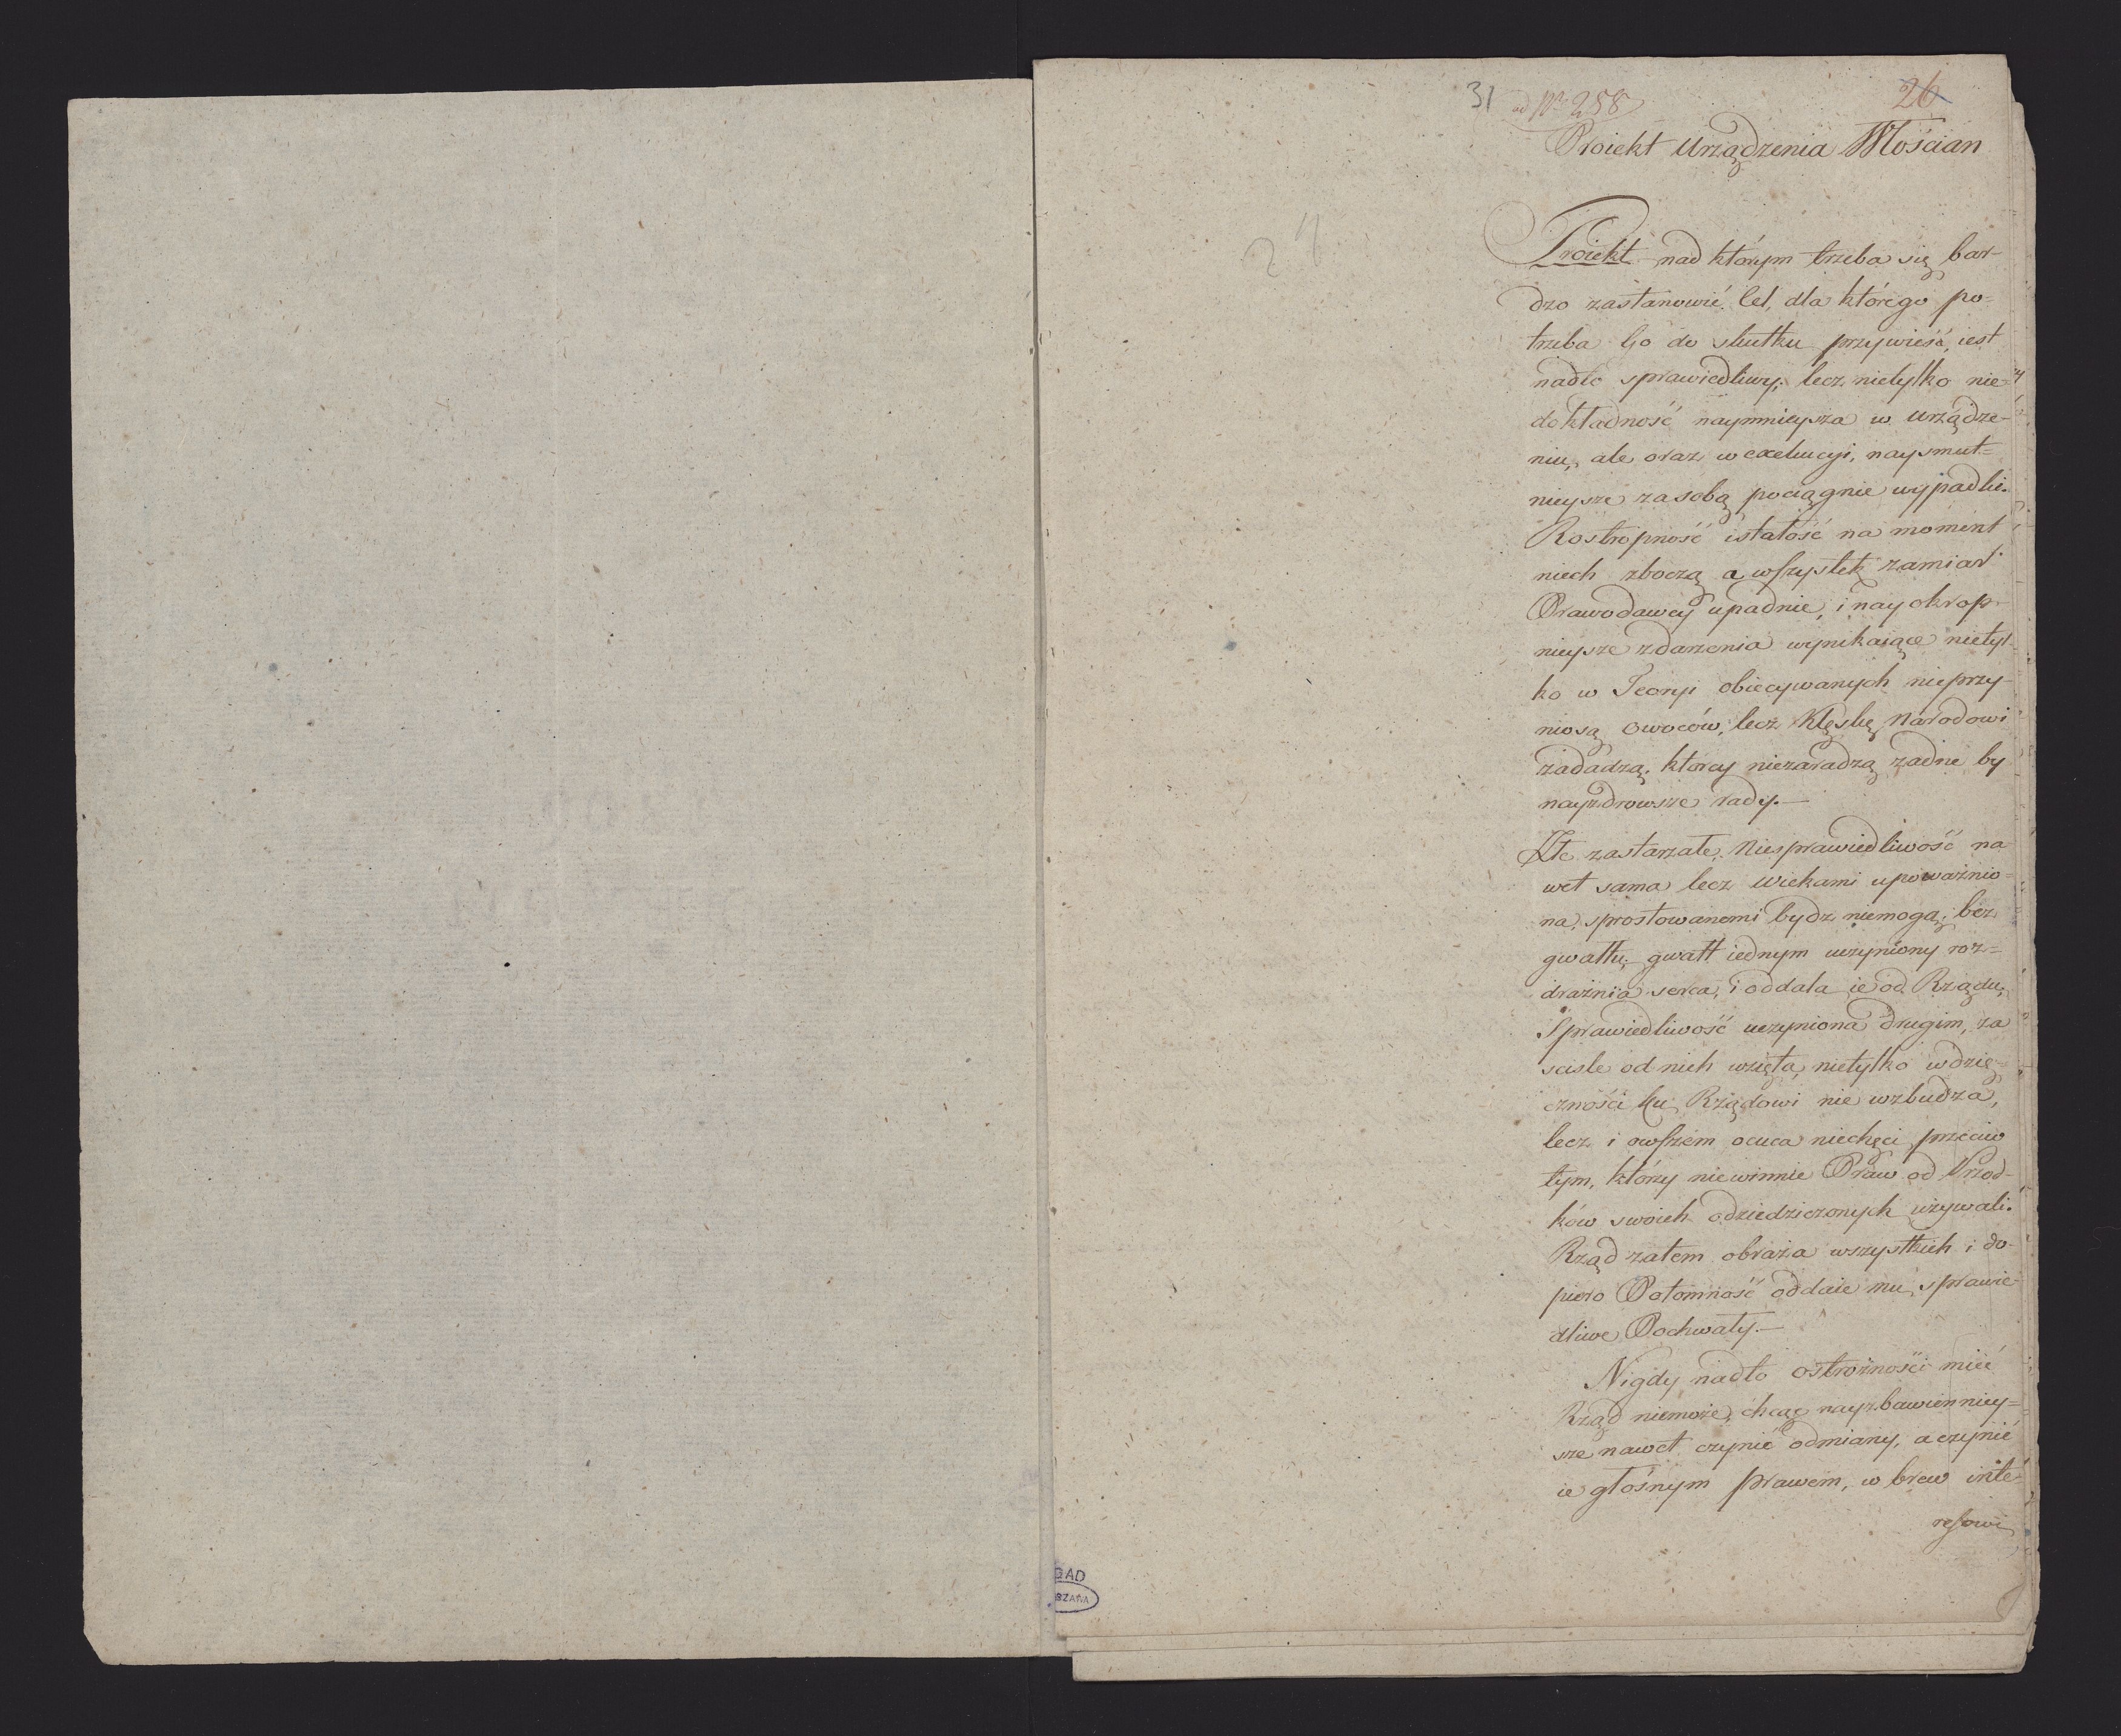 31 ad Nr 258 26
Proiekt Urządzenia Włościan
Proiekt nad którym trzeba się bar-
dzo zastanowić. Cel, dla którego po=
trzeba Go do skutku przywieść, iest
nadto sprawiedliwy; lecz nietylko nie=
dokładność naymnieysza w urządze-
niu, ale oraz w exekucyi, naysmut=
nieysze za sobą pociągnie wypadki.
Rostropność i stałość na moment
niech zboczą a wszystek zamiar
Prawodawcy upadnie, i nayokrop-
nieysze zdarzenia wynikaiące nietyl-
ko w Teoryi obiecywanych nieprzy-
niosą owoców, lecz Klęskę Narodowi
zadadzą, którey niezaradzą żadne by
nayzdrowsze rady.—
Złe zastarzałe, Niesprawiedliwość na-
wet sama lecz wiekami upoważnio=
na, sprostowanemi bydz niemogą; bez
gwałtu; gwałt iednym uczyniony roz=
drażnia serca, i oddala ie od Rządu;
Sprawiedliwość uczyniona drugim, za
ścisle od nich wzięta, nietylko wdzię=
czności ku Rządowi nie wzbudza,
lecz i owszem ocuca niechęci przeciw
tym, którzy niewinnie Praw od Przod-
ków swoich odziedziczonych używali.
Rząd zatem obraża wszystkich i do-
piero Potomność oddaie mu sprawie-
dliwe Pochwały.—
Nigdy nadto ostrożności mieć
Rząd niemoże, chcąc nayzbawienniey=
sze nawet czynić odmiany, a czynić
ie głośnym prawem, w brew inte-
resowi
24
GAD
SZAWA